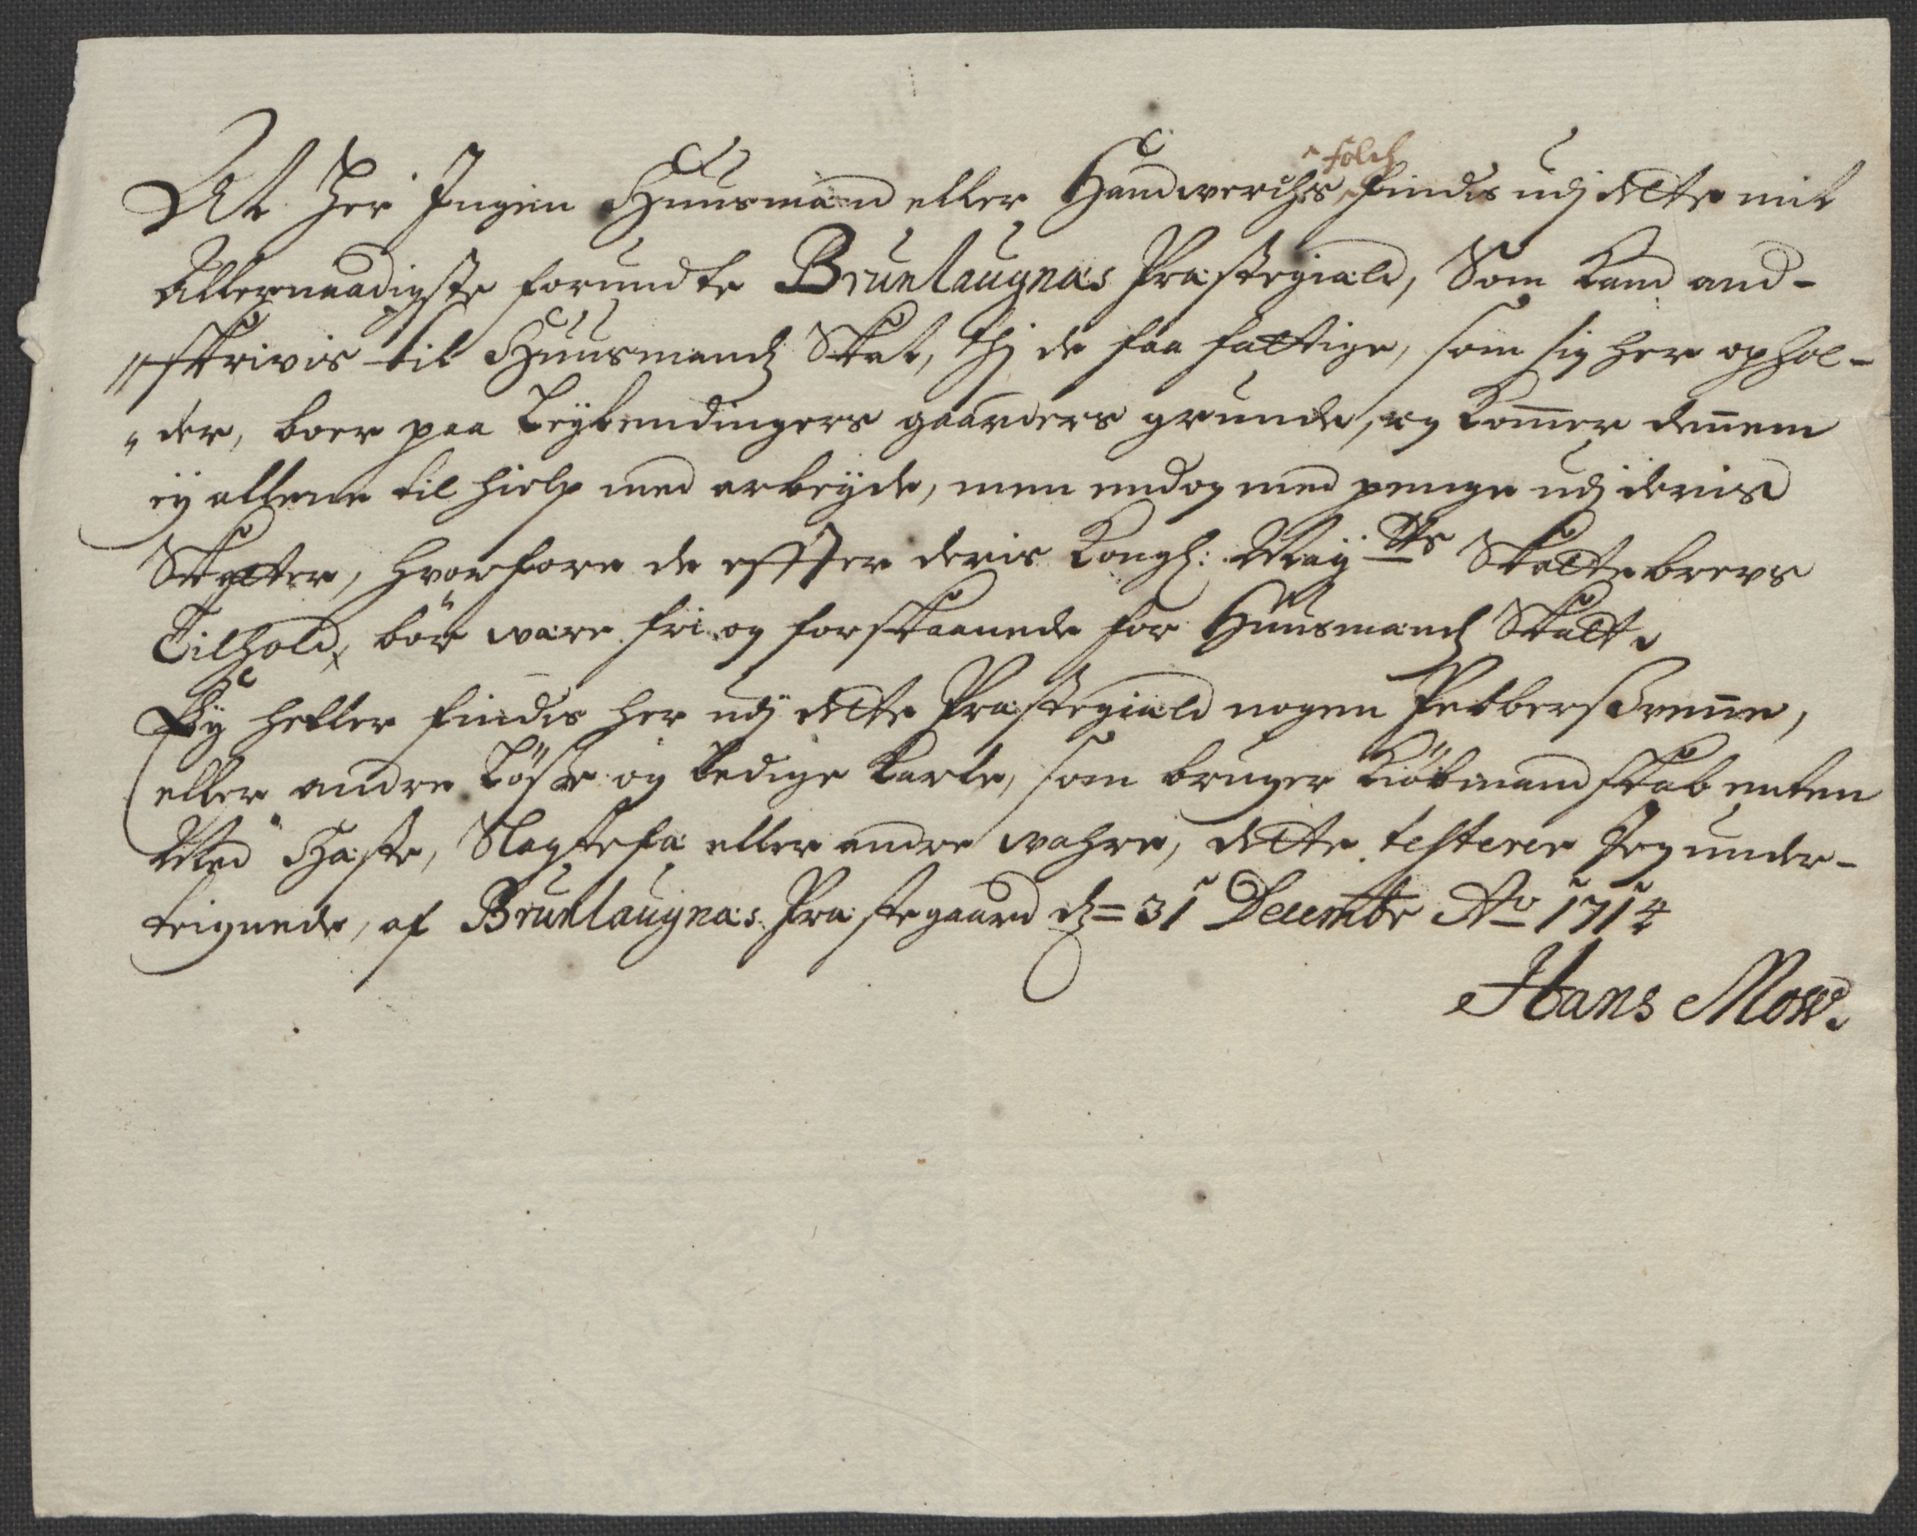 At her Ingen Huusmænd eller Handwerchs folch findis udj dette mit
Allernaadigste forundte Brunlaugnæs Præstegiæld, Som kand and-
skrivis til Huusmands Skat, thj de faa fattige, som sig her ophol-
der, boer paa Leylendingers gaarders grunde, og kom̄er den̄em
ey allene til hielp med arbeyde, men endog med penge udj deris
Skatter, hvorfore de effter deris Kongl: May.tts Skattebrevs
Tilhold, bör være fri og forskaanede for Huusmænds Skatt.
Ey heller findis her udj dette Præstegiæld nogen Pebbersven̄e,
eller andre Löse og Ledige Karle, som bruger Kiöbmandskab enten
Med Hæste, Slagtefæ eller andre wahre, dette testerer Jeg under-
teignede, af Brunlaugnæs Præstegaard d. 31 Decembr Ao 1714
Hans Mow.